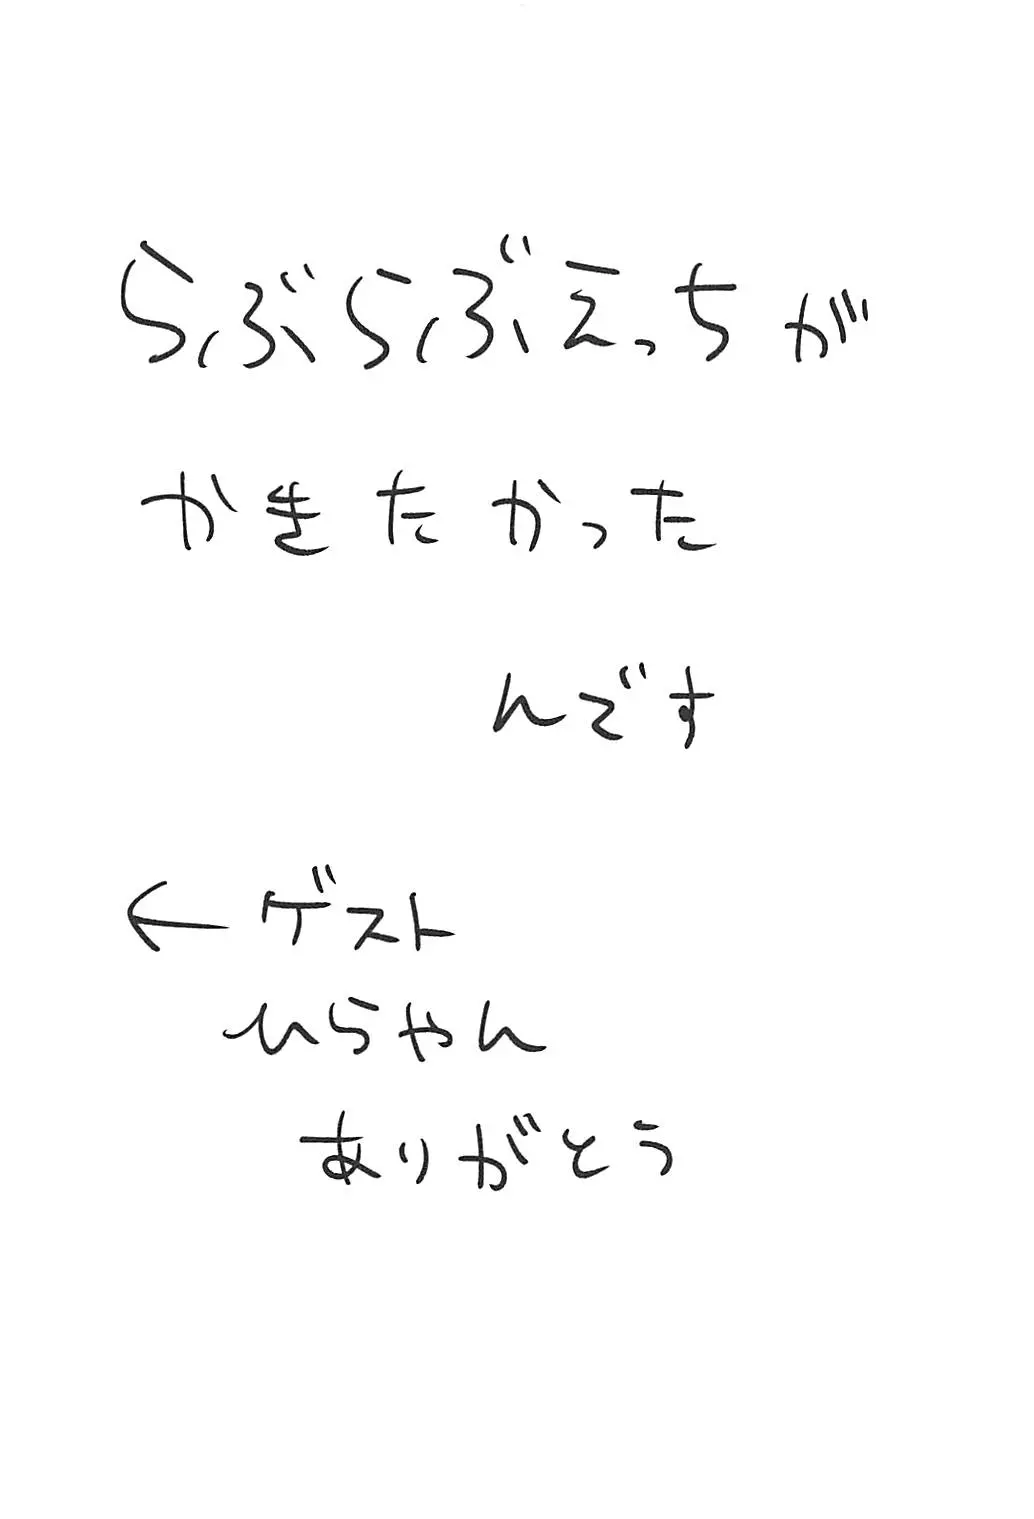 らぶらぶえっちが
かきたかった
んです
← ゲスト
ひらやん
ありがとう